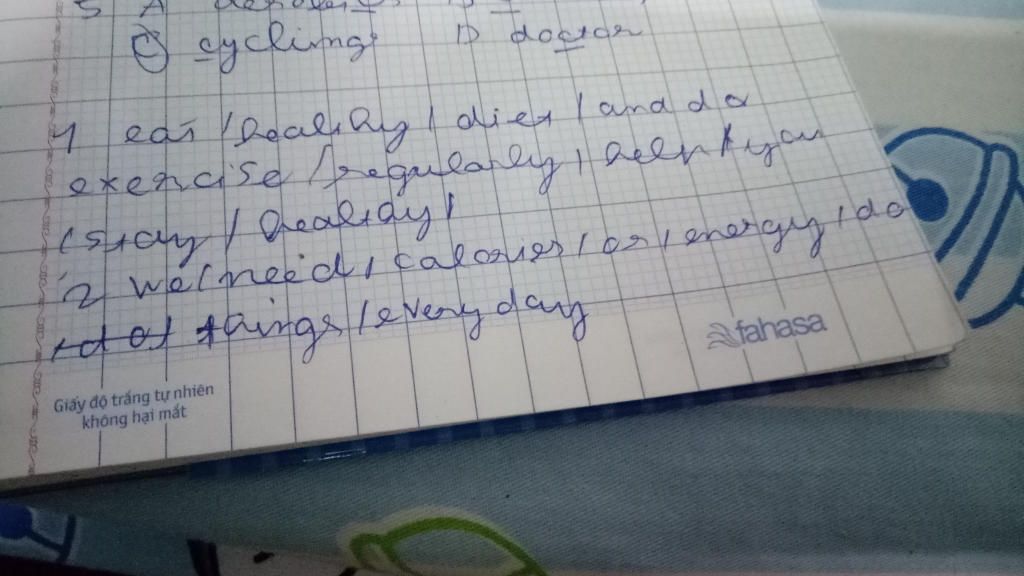 5 A
C cycling D doctor
1 eat / healthy / diet / and do
exercise / regularly / help / you
/ stay / healthy /
2 we / need / calories / or / energy / do
things / every day
fahasa
Giấy độ trắng tự nhiên
không hại mắt